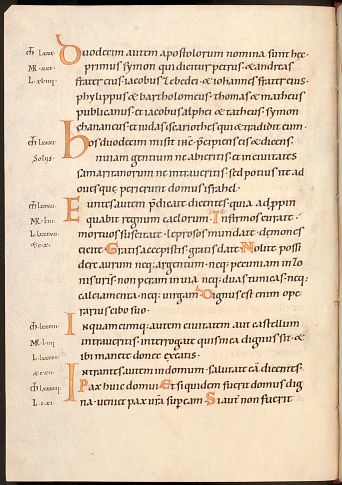 Duodecim autem apostolorum nomina sunt hęc·
primus symon qui dicitur petrus· & andreas
frater eius· iacobus zebedei· & iohannes frater eius·
phylippus & bartholomeus· thomas & matheus
publicanus· et iacobus alphei & tatheus· symon
chananeus· et iudas scariothes qui & tradidit eum·
Hos duodecim misit ihc· pręcipiens eis & dicens·
In uiam gentium ne abieritis· et in ciuitates
samaritanorum ne intraueritis· sed potius ite ad
oues quę perierunt domus israhel·
Euntes autem prędicate dicentes· quia adpropin
quabit regnum caelorum· Infirmos curate·
mortuos suscitate· leprosos mundate· demones
eicite· Gratis accepistis· gratis date· Nolite possi
dere aurum neq· argentum· neq· pecuniam in zo
nis uris· non peram in uia· neq· duas tunicas· neq·
calciamenta· neq· uirgam· Dignus est enim ope
rarius cibo suo·
In quamcumq· autem ciuitatem aut castellum
intraueritis· interrogate quis in ea dignus sit· &
ibi manete donec exeatis·
Intrantes autem in domum· salutate eam dicentes·
Pax huic domui· Et si quidem fuerit domus dig
na· ueniet pax ura sup eam· Si aut non fuerit